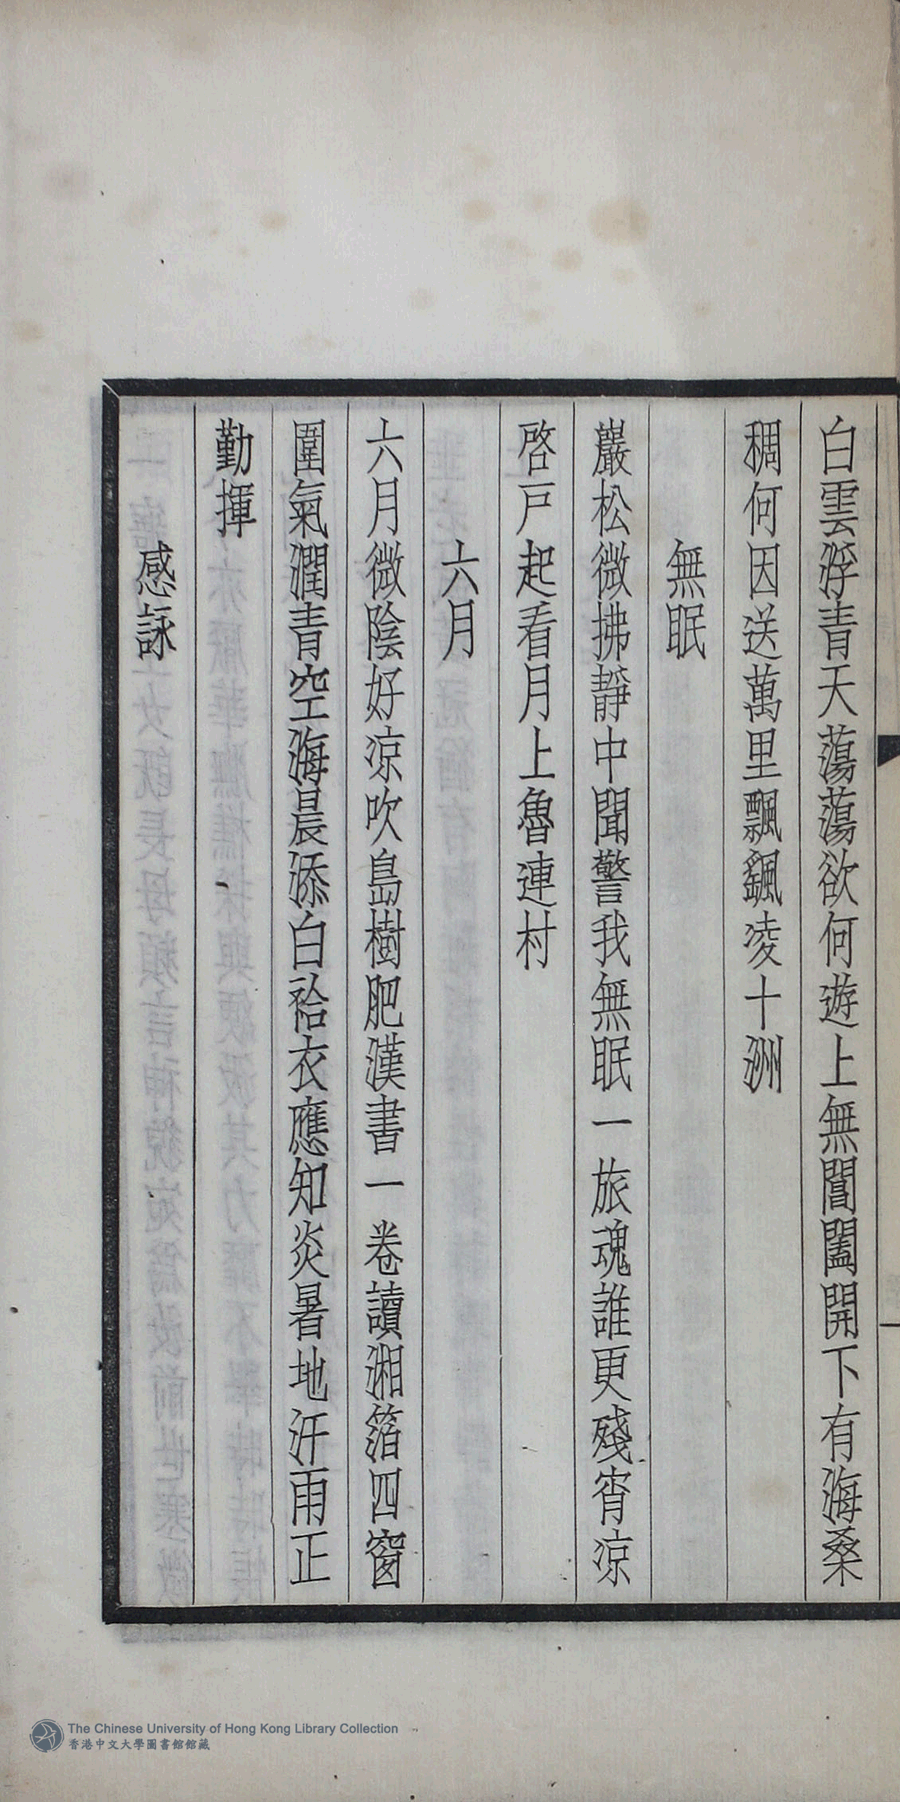 白雲浮青天蕩蕩欲何遊上無閶闔開下有海桑
稠何因送萬里飄颻凌十洲
無眠
巖松微拂靜中聞警我無眠一旅魂誰更殘宵涼
啓戸起看月上魯連村
六月
六月微陰好涼吹島樹肥漢書一卷讀湘箔四窗
圍氣潤青空海晨添白袷衣應知炎暑地汗雨正
勤揮
感詠
The Chinese University of Hong Kong Library Collection
香港中文大學圖書館館藏